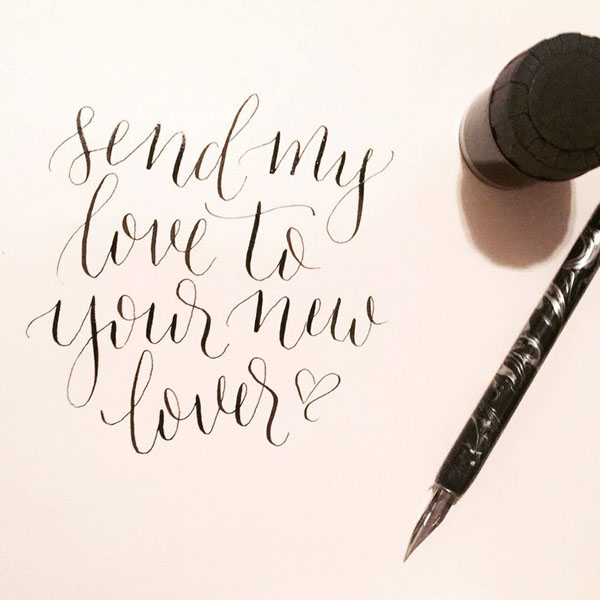 send my
love to
your new
lover♡